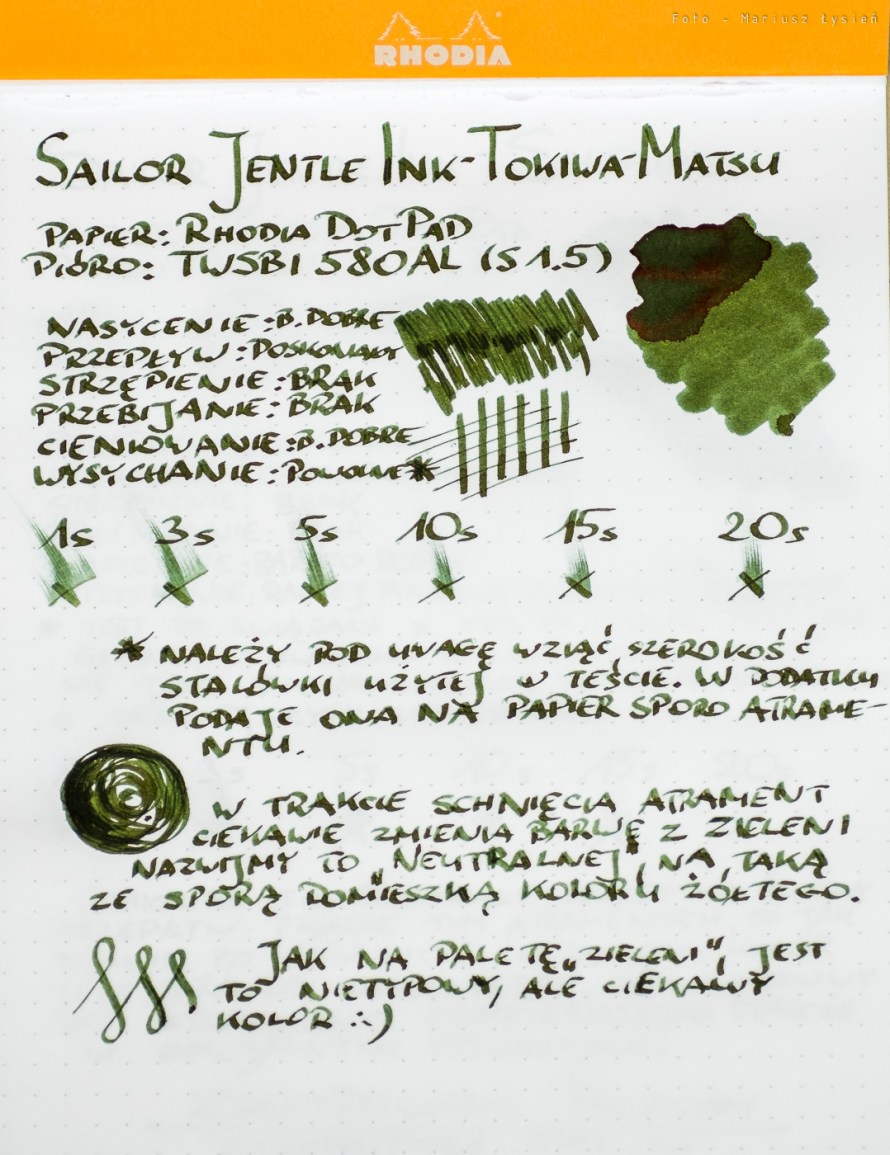 Foto - Mariusz Łysień
RHODIA
SAILOR JENTLE INK-TOKIWA-MATSU
PAPIER: RHODIA DOTPAD
PIÓRO: TWSBI 580AL (S 1.5)
NASYCENIE: B. DOBRE
PRZEPŁYW: DOSKONAŁY
STRZĘPIENIE: BRAK
PRZEBIJANIE: BRAK
CIENIOWANIE: B. DOBRE
WYSYCHANIE: POWOLNE*
1s 3s 5s 10s 15s 20s
* NALEŻY POD UWAGĘ WZIĄĆ SZEROKOŚĆ
STALÓWKI UŻYTEJ W TEŚCIE. W DODATKU
PODAJE ONA NA PAPIER SPORO ATRAME-
NTU.
W TRAKCIE SCHNIĘCIA ATRAMENT
CIEKAWIE ZMIENIA BARWĘ Z ZIELENI
NAZWIJMY TO „NEUTRALNEJ", NA TAKĄ
ZE SPORĄ DOMIESZKĄ KOLORU ŻÓŁTEGO.
JAK NA PALETĘ „ZIELENI", JEST
TO NIETYPOWY, ALE CIEKAWY
KOLOR :-)